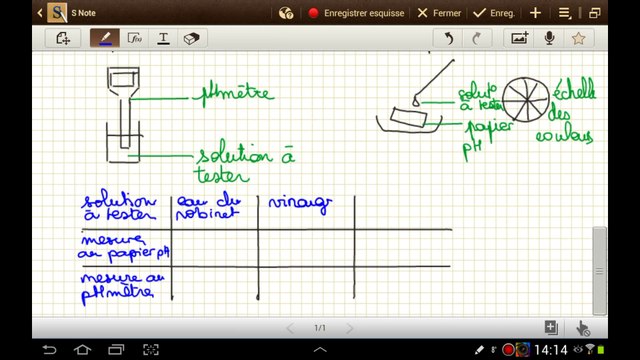 S Note
Enregistrer esquisse
Fermer
Enreg.
f(x)
T
pHmètre
solution à
tester
solut°
à tester
papier
pH
échelle
des
couleurs
solution
à tester
eau du
robinet
vinaigr
mesure
au papier pH
mesure au
pHmètre
1/1
8°
14:14